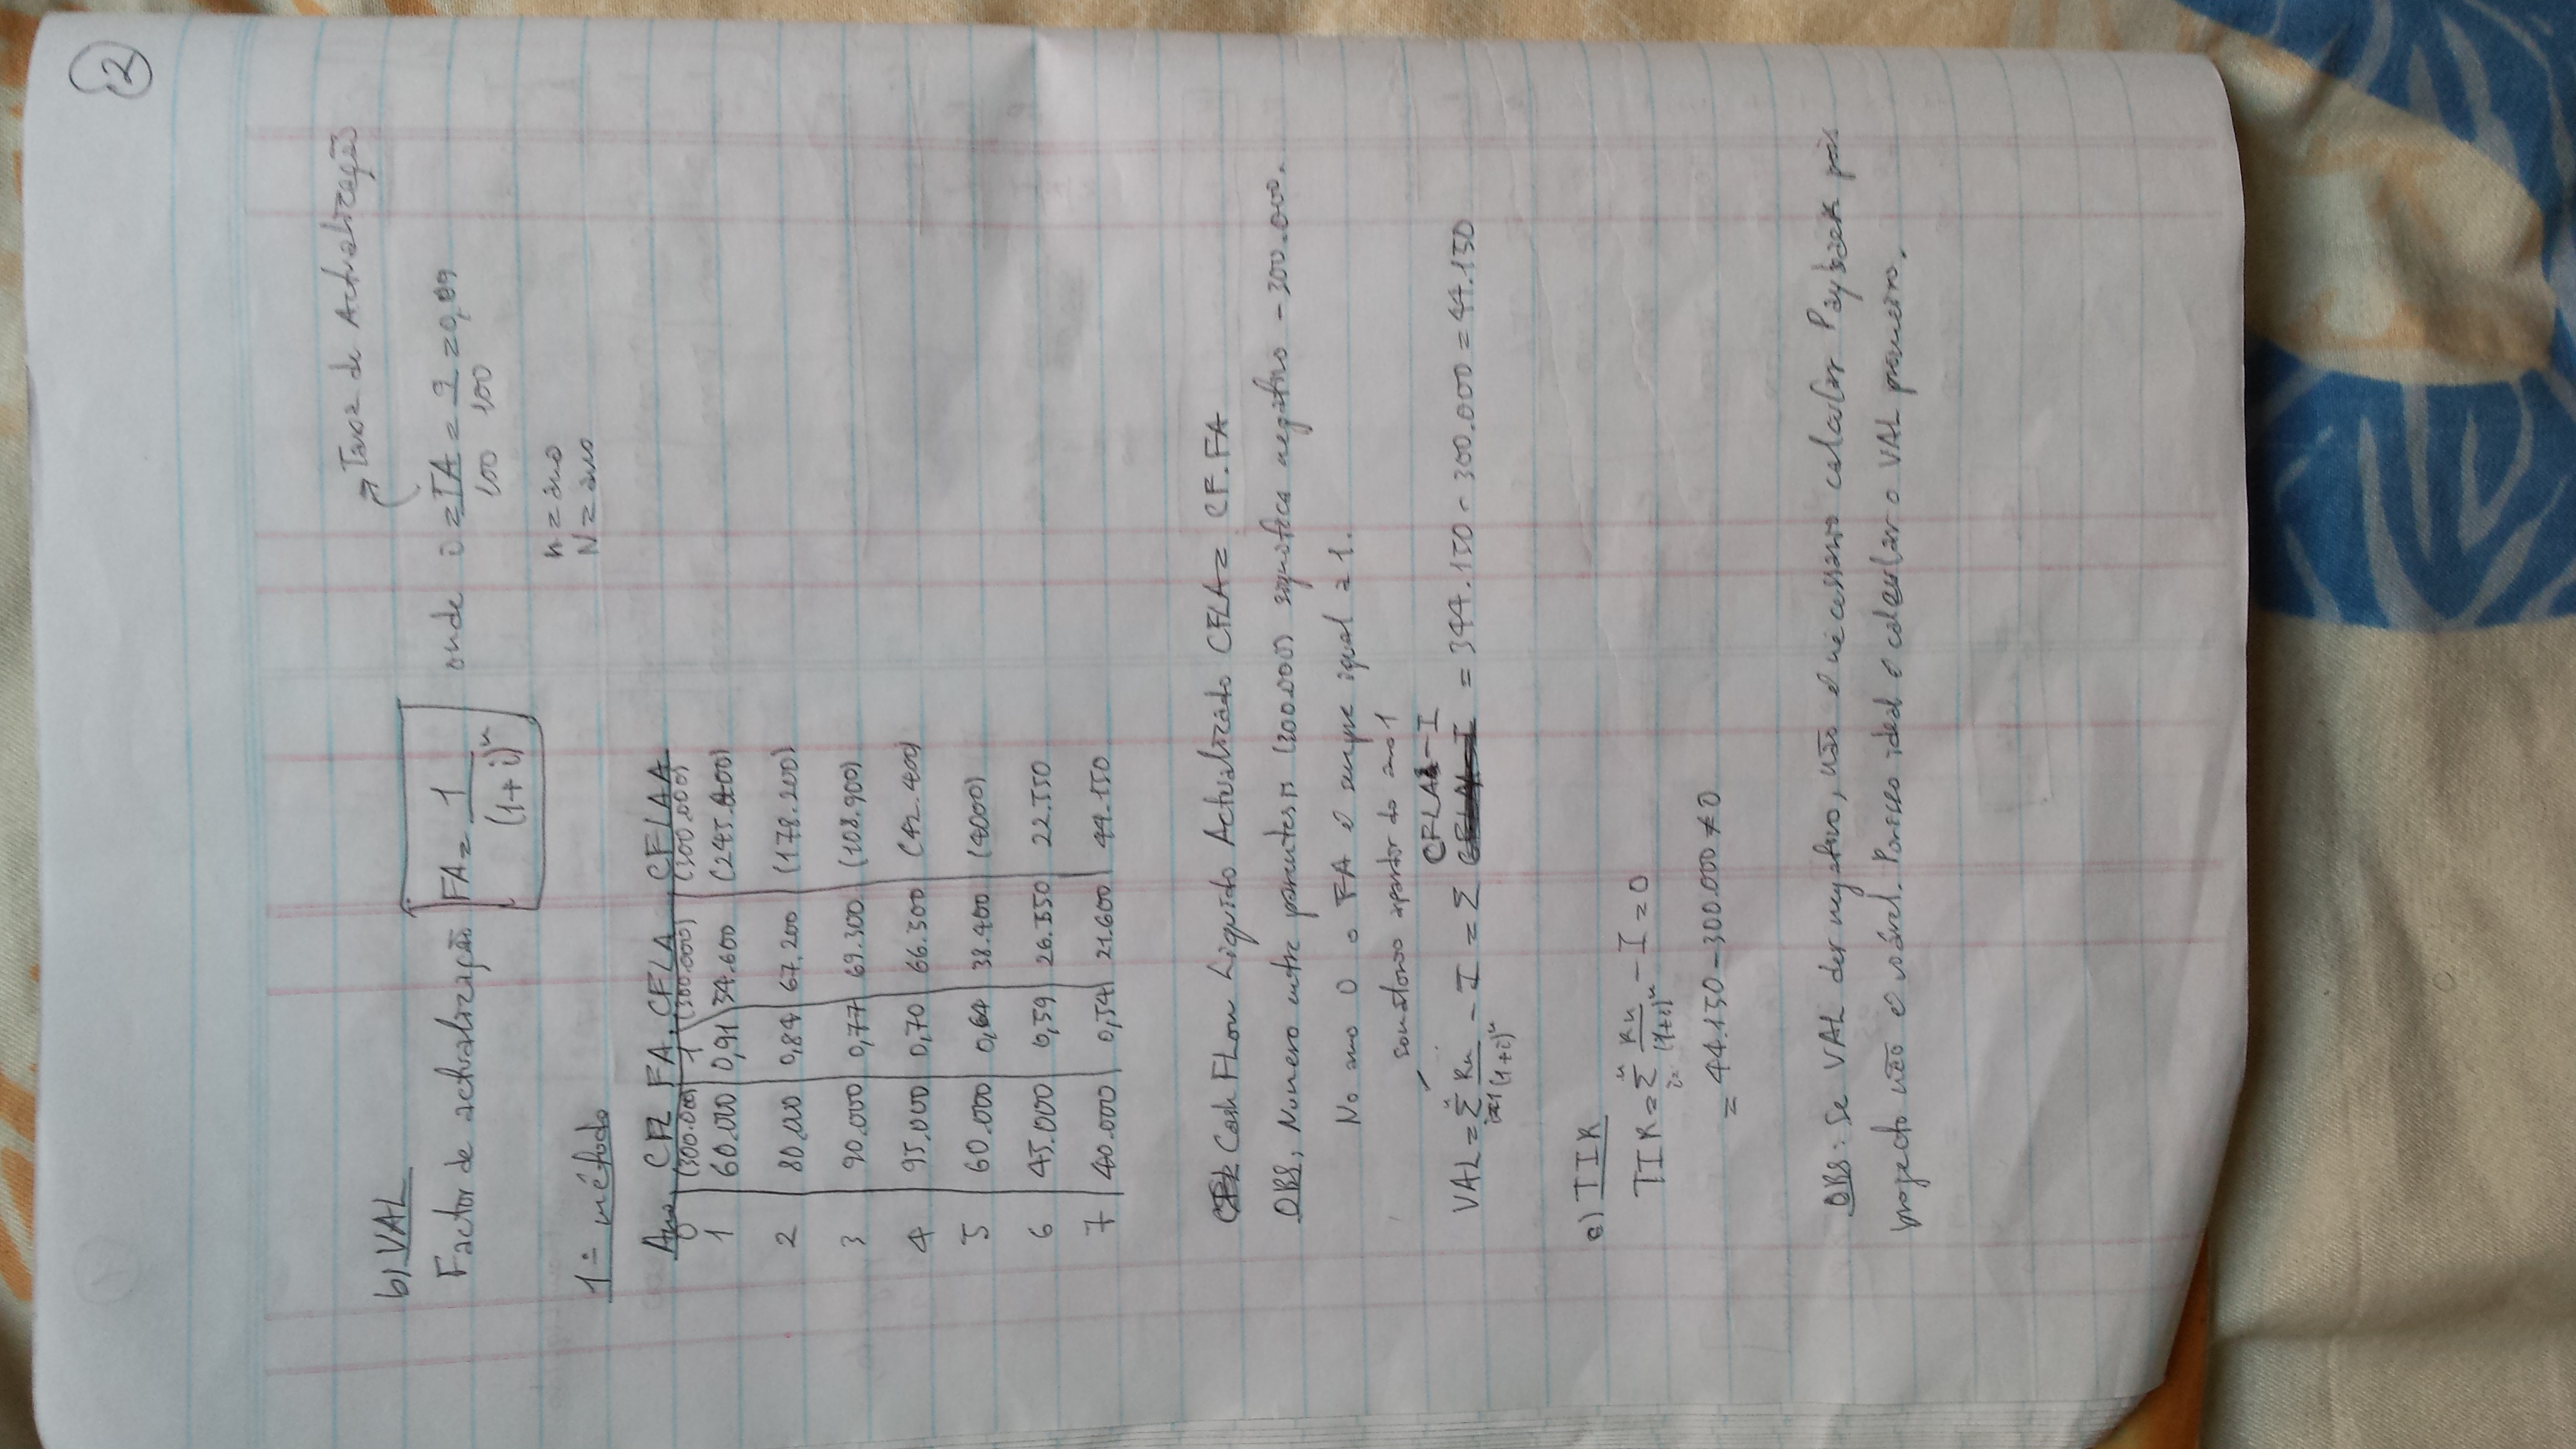 2
b) VAL
Taxa de Actualização
Factor de actualização FA = 1/(1+i)^n onde i = TA/100 = 9/100 = 0,09
n = ano
N = ano
1º método
Ano CFL FA CFLA CFLAA
0 (300.000) 1 (300.000) (300.000)
1 60.000 0,91 54.600 (245.400)
2 80.000 0,84 67.200 (178.200)
3 90.000 0,77 69.300 (108.900)
4 95.000 0,70 66.500 (42.400)
5 60.000 0,64 38.400 (4000)
6 45.000 0,59 26.550 22.550
7 40.000 0,54 21.600 44.150
Cash FLow Liquido Actualizado CFLA = CF.FA
OBS: Numero entre parentesis (300.000) significa negativo - 300.000.
No ano 0 o FA é sempre igual a 1.
somatorio apartir do ano 1
CFLA - I
VAL = Σ^n_{i=1} Rn/(1+i)^n - I = Σ = 344.150 - 300.000 = 44.150
c) TIR
TIR = Σ^n_{i=} Rn/(1+i)^n - I = 0
= 44.150 - 300.000 ≠ 0
OBS: Se VAL der negativo, não é necessario calcular Payback pois
projecto não é viável. Porisso ideal é calcular o VAL primeiro.